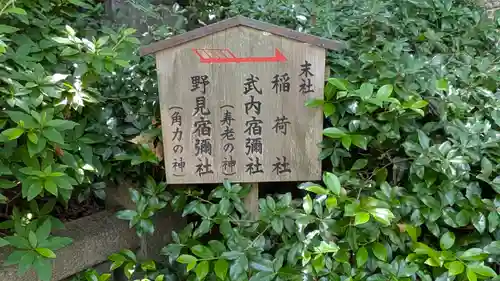 末社
稲荷社
武内宿彌社
(寿老の神)
野見宿彌社
(角力の神)